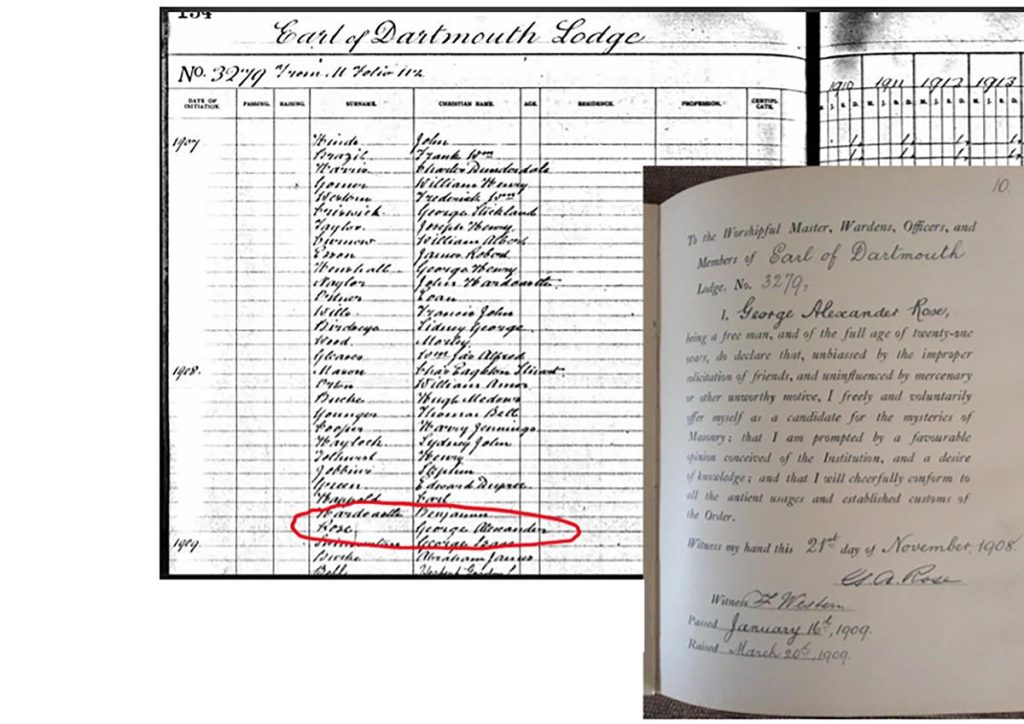 134
Earl of Dartmouth Lodge
No. 3279 From M Folio 112
DATE OF INITIATION. PASSING. RAISING. SURNAME. CHRISTIAN NAME. AGE. RESIDENCE. PROFESSION. CERTIFICATE.
1910 1911 1912 1913
1907 Hinds John
Brazil Frank Wm
Harris Charles
Gomer William Henry
Western Frederick Wm
George Stickland
Taylor Joseph Henry
William Albert
James Robert
Henshall George Henry
Naylor John Hardcastle
Wills Francis John
Birdseye Sidney George
Wood Morley
Gleaves Wm Jas Alfred
1908. Mason Chas Eagleton Stuart
Orton William Amor
Buche Hugh Medows
Younger Thomas Bell
Cooper Harry Jennings
Haylock Sydney John
Tolhurst Henry
Jobbins Stephen
Green Edward Dupree
Happold Carl
Hardcastle Benjamin
Rose George Alexander
1909 George Isaac
Burke Abraham James
10.
To the Worshipful Master, Wardens, Officers, and
Members of Earl of Dartmouth
Lodge, No. 3279,
I, George Alexander Rose,
being a free man, and of the full age of twenty-one
years, do declare that, unbiassed by the improper
solicitation of friends, and uninfluenced by mercenary
or other unworthy motive, I freely and voluntarily
offer myself as a candidate for the mysteries of
Masonry; that I am prompted by a favourable
opinion conceived of the Institution, and a desire
of knowledge; and that I will cheerfully conform to
all the antient usages and established customs of
the Order.
Witness my hand this 21st day of November, 1908.
G. A. Rose
Witness F Western.
Passed January 16th, 1909.
Raised March 20th, 1909.